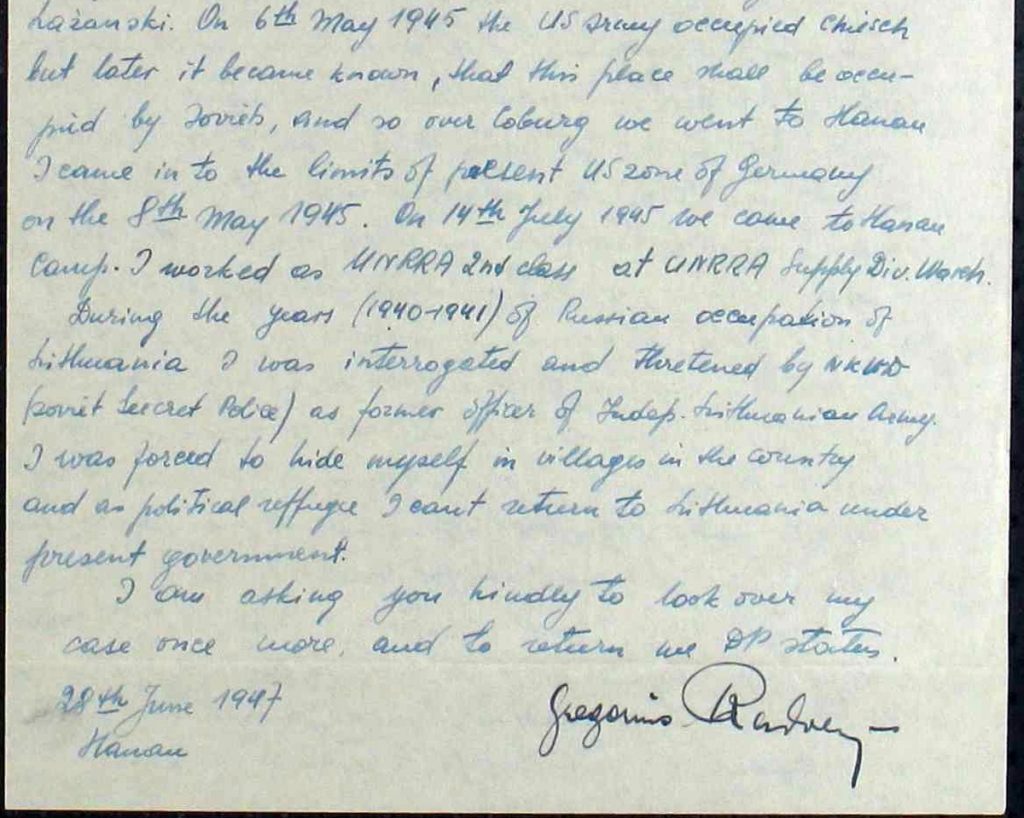 Lažanski. On 6th May 1945 the US Army occupied Chiesch
but later it became known, that this place shall be occu-
pied by Soviets, and so over Coburg we went to Hanau
I came in to the limits of present US zone of Germany
on the 8th May 1945. On 14th July 1945 we came to Hanau
Camp. I worked as UNRRA 2nd class at UNRRA Supply Div.
During the years (1940-1941) of Russian occupation of
Lithuania I was interrogated and thretened by NKWD
(Soviet Secret Police) as former officer of Indep. Lithuanian Army.
I was forced to hide myself in villages in the country
and as political reffugee I cant return to Lithuania under
present government.
I am asking you kindly to look over my
case once more, and to return me DP status.
28th June 1947
Hanau
Gregorius